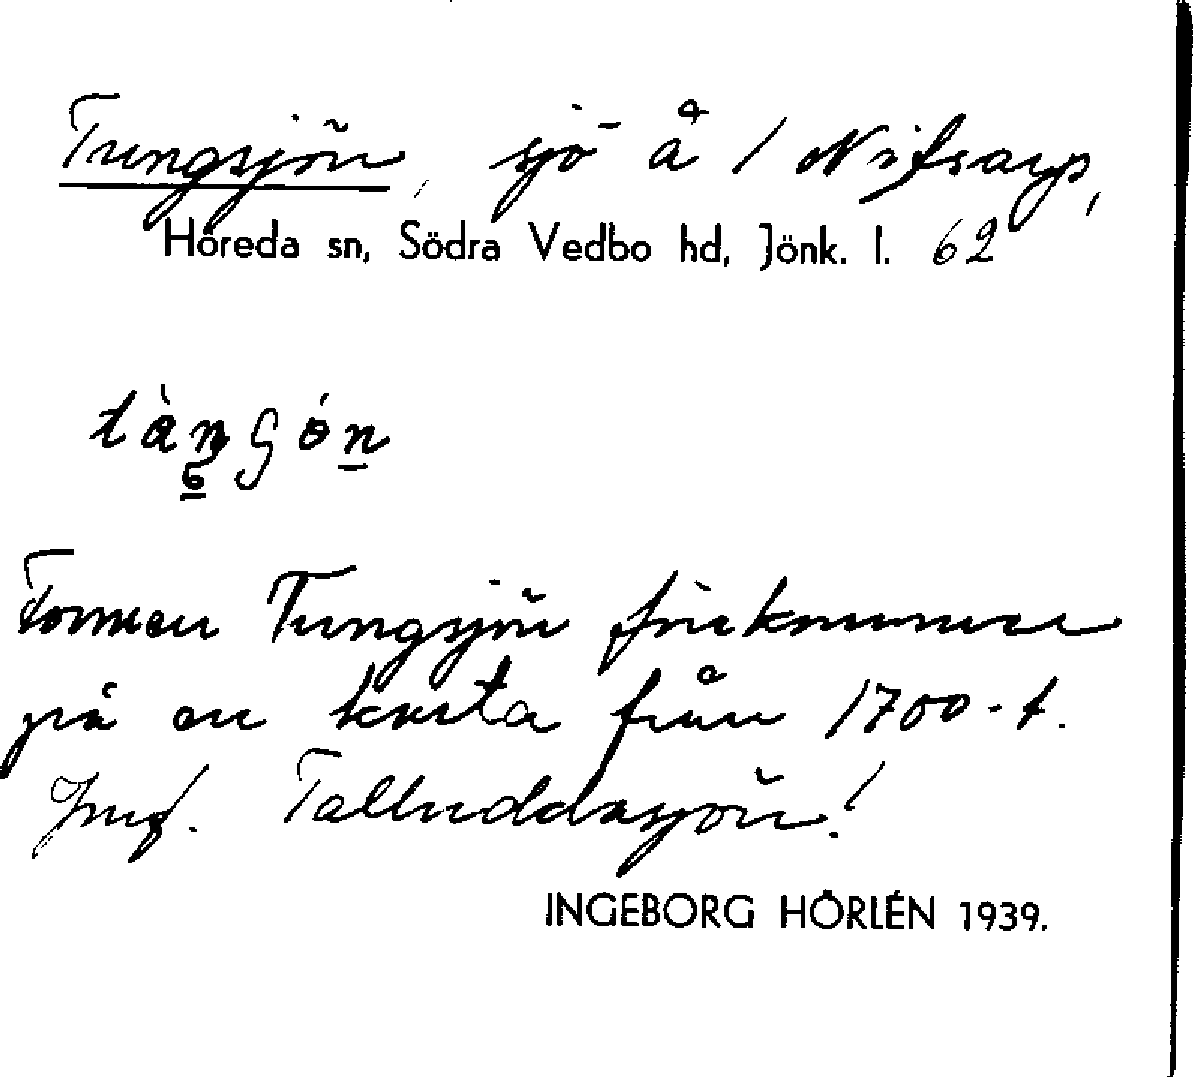 Tungsjön, sjö å 1 Nifsarp,
Höreda sn, Södra Vedbo hd, Jönk. l. 62
Formen Tungsjön förekommer
på en karta från 1700-t.
Jmf. Talluddasjön!
INGEBORG HÖRLÉN 1939.